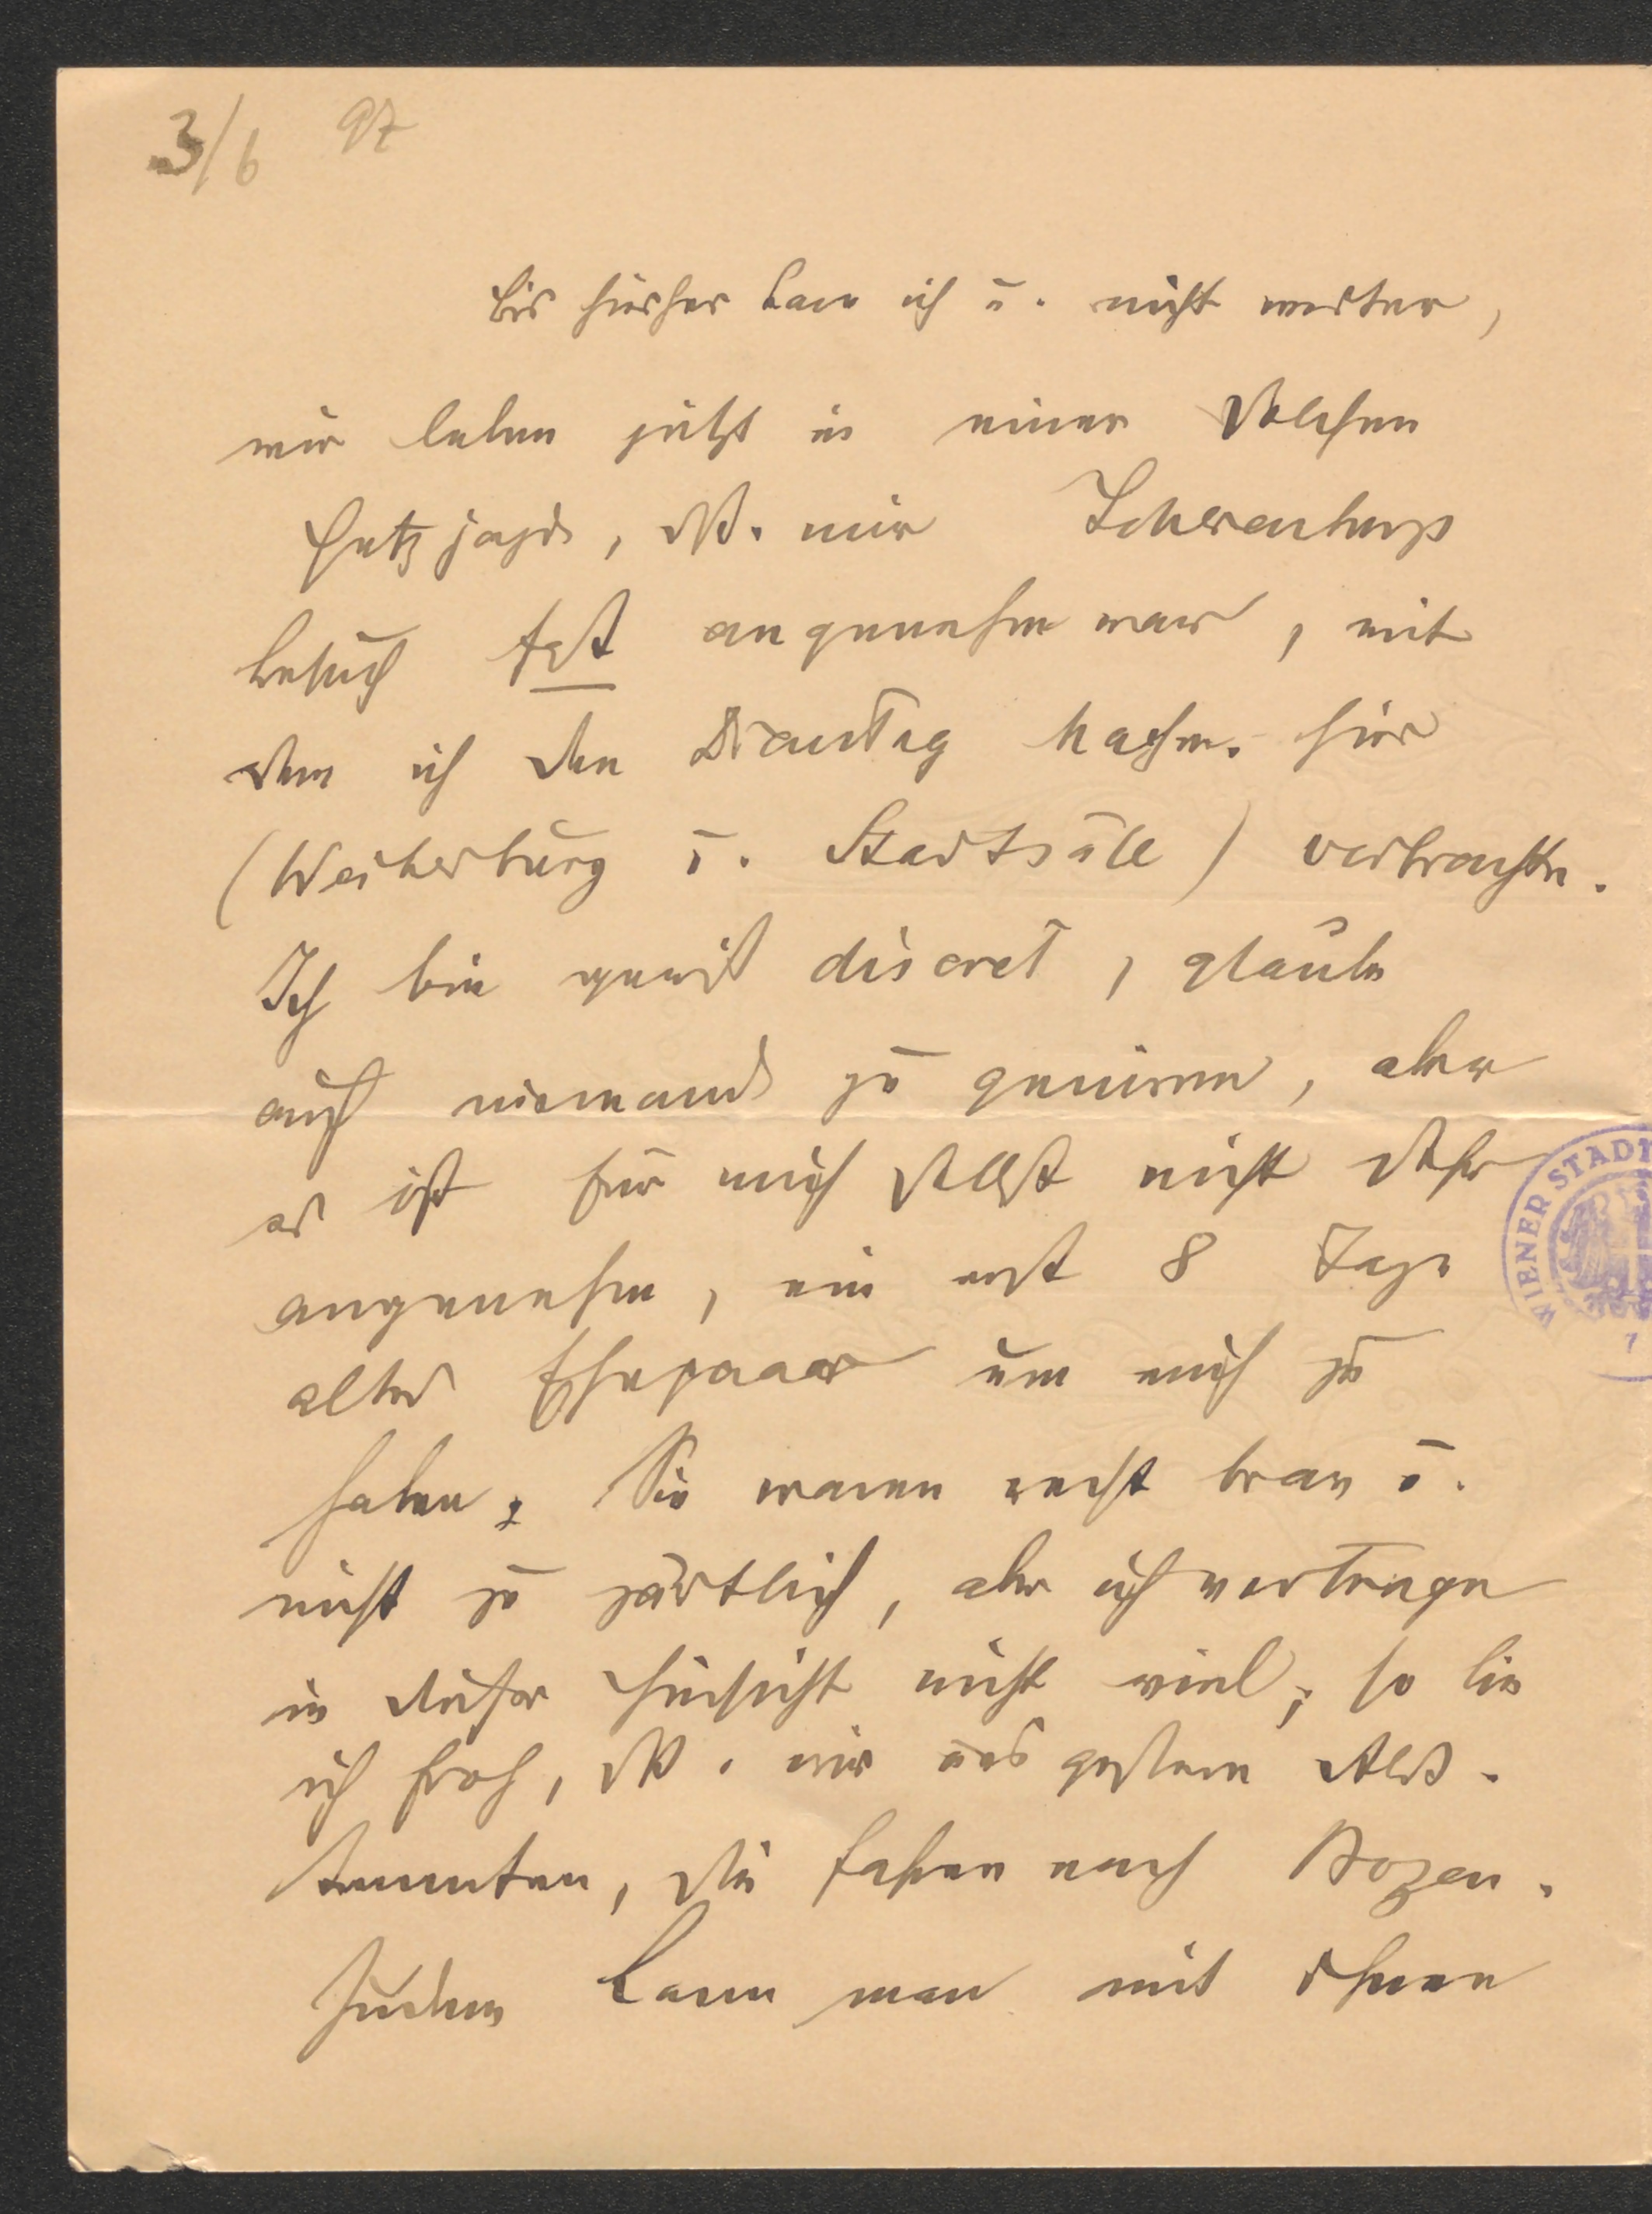 3/6 97
bis hierher kam ich u. nicht weiter,
wir leben jetzt in einer solchen
Hetzjagd, dß. mir
besuch fast angenehm war, mit
dem ich den Dienstag Nachm. hier
(Weiherburg u. Stadtsäle) verbrachte.
Ich bin gewiß discret, glaube
auch niemand zu geniren, aber
es ist für mich selbst nicht sehr
angenehm, ein erst 8 Tage
altes Ehepaar um mich zu
haben. Sie waren recht brav u.
nicht zu zärtlich, aber ich vertrage
in dieser Hinsicht nicht viel; so bin
ich froh, dß. wir uns gestern Abds.
trennten, sie fahren nach Bozen.
Zudem kann man mit ihnen
WIENER STADT